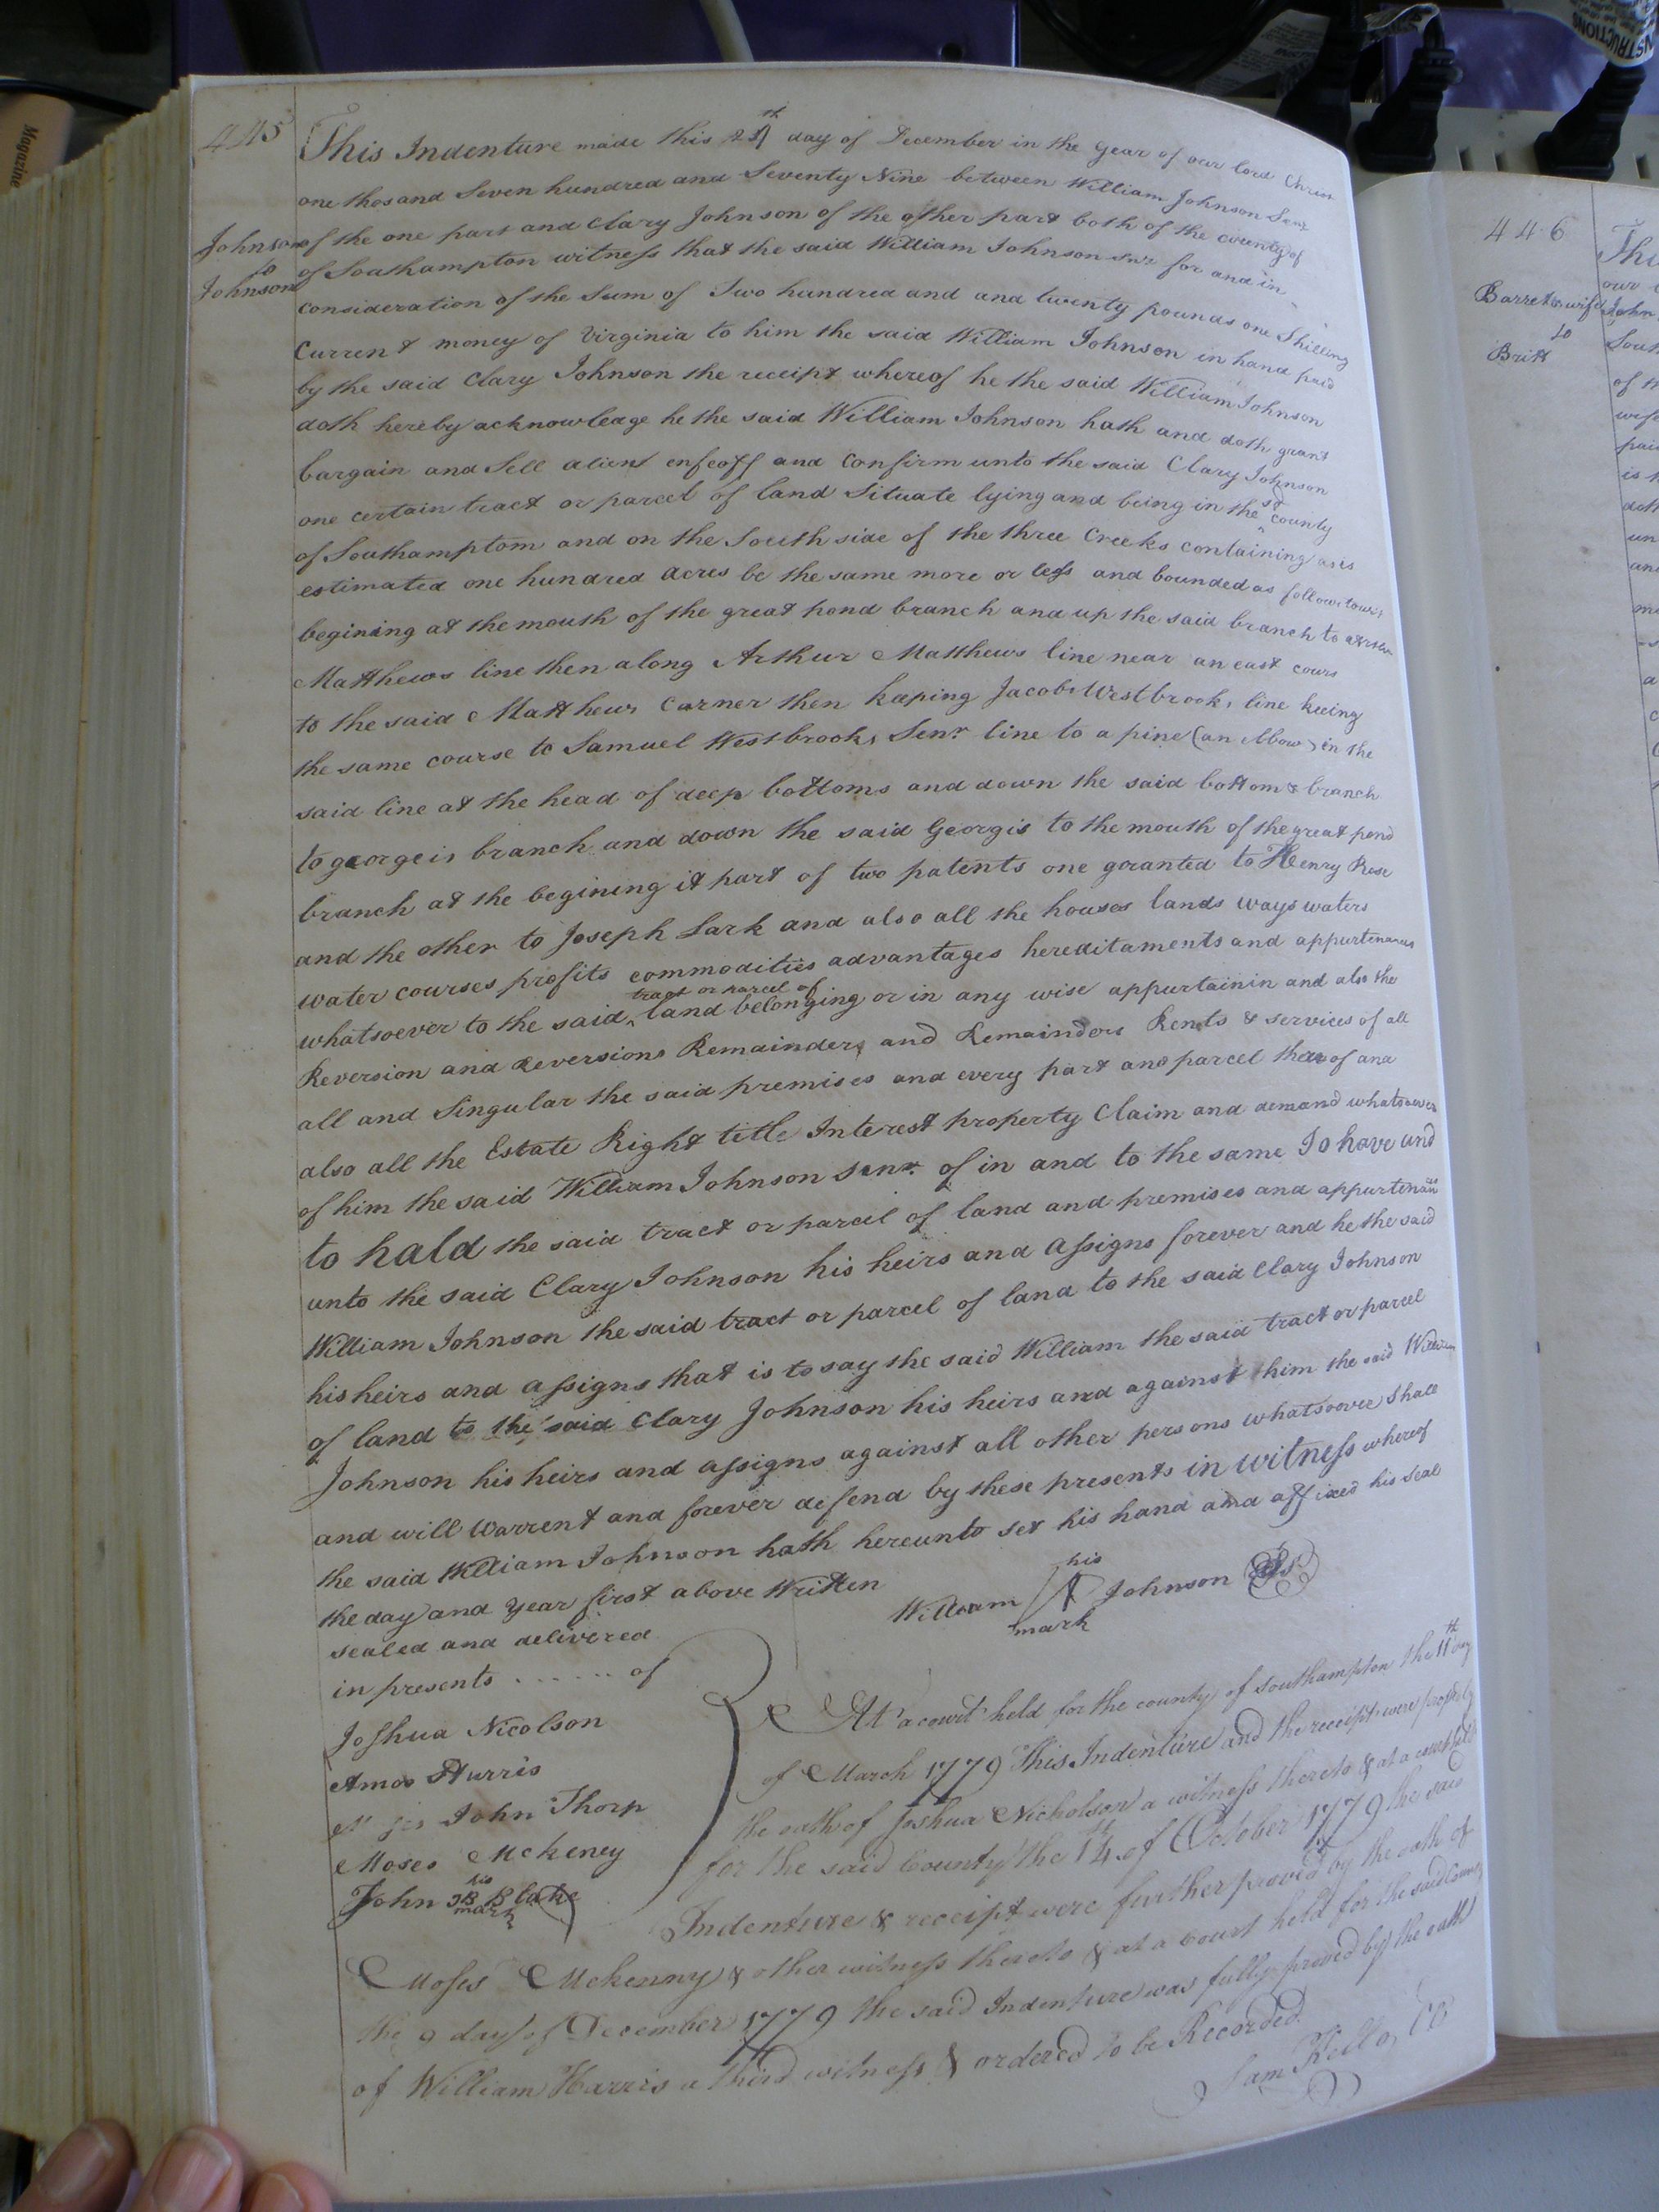 445
Johnson
to
Johnson
This Indenture made this day of December in the Year of our lord Christ
one thosand Seven hundred and Seventy Nine between William Johnson Senr
of the one part and Clary Johnson of the other part both of the county of
of Southampton witness that the said William Johnson Snr for and in
consideration of the Sum of Two hundred and and twenty pounds one Shilling
Current money of Virginia to him the said William Johnson in hand paid
by the said Clary Johnson the receipt whereof he the said William Johnson
doth hereby acknowledge he the said William Johnson hath and doth grant
bargain and Sell alient enfeoff and Confirm unto the said Clary Johnson
one certain tract or parcel of land Situate lying and being in the sd county
of Southamptom and on the South side of the three Creeks containing as is
estimated one hundred acres be the same more or less and bounded as follow towit
begining at the mouth of the great pond branch and up the said branch to
Matthews line then along Arthur Matthews line near an east cours
to the said Matthews Carner then kaping Jacob Westbrooks line keeing
the same course to Samuel Westbrooks Senr line to a pine (an Mbow) in the
said line at the head of deep bottoms and down the said bottom & branch
to georgeis branch and down the said Georgis to the mouth of the great pond
branch at the begining it part of two patents one goranted to Henry Rose
and the other to Joseph Lark and also all the houses lands ways waters
water courses profits commodities advantages hereditaments and appurtenances
tract or parcel of
whatsoever to the said land belonging or in any wise appurtainin and also the
Reversion and Reversions Remainders and Remainders Rents & services of all
all and Singular the said premises and every part and parcel thereof and
also all the Estate Right title Interest property Claim and demand whatsoever
of him the said William Johnson Senr. of in and to the same To have and
to hald the said tract or parcel of land and premises and appurtenances
unto the said Clary Johnson his heirs and assigns forever and he the said
William Johnson the said tract or parcel of land to the said Clary Johnson
his heirs and assigns that is to say the said William the said tract or parcel
of land to the said Clary Johnson his heirs and against him the said William
Johnson his heirs and assigns against all other persons whatsoever Shall
and will warrent and forever defend by these presents in witness whereof
the said William Johnson hath hereunto set his hand and affixed his Seal
the day and year first above Written
his
William Johnson Ls
mark
sealed and delivered
in presents ...... of
Joshua Nicolson
Amos Harris
John Thorp
Moses Mckeney
his
John JB Blake
mark
At a court held for the county of Southampton the 11th day
of March 1779 This Indenture and the receipt were
the oath of Joshua Nicholson a witness thereto & at a court held
for the said County the 14 of October 1779 the said
Indenture & receipt were further proved by the oath of
Moses Mckenny & other witness thereto & at a court held for the said County
the 9 day of December 1779 the said Indenture was fully proved by the oath
of William Harris a third witness & ordered to be Recorded.
Sam Kello CC
446
Barret & wife
to
Britt
our
John
of
wife